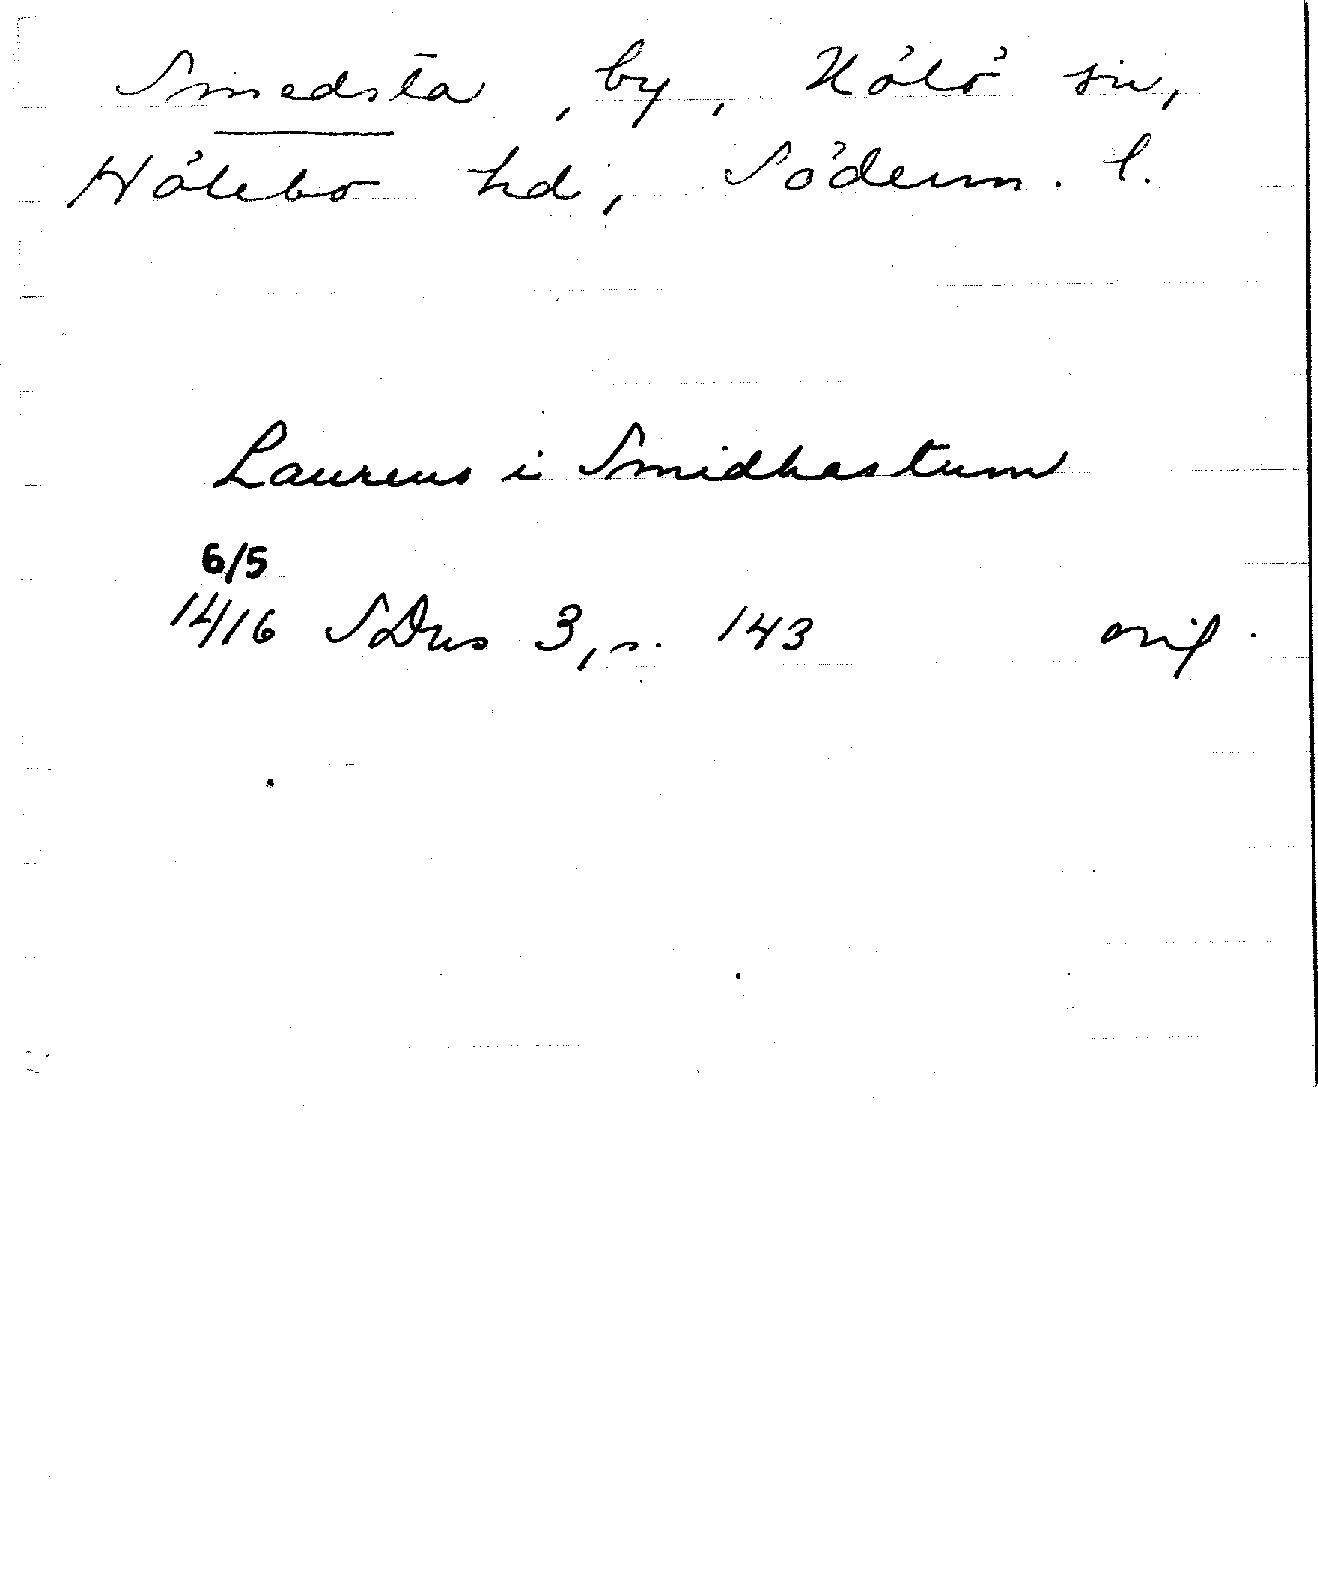 Smedsta, by, Hölö sn,
Hölebo hd, Söderm. l.
Laurens i Smidhastum
6/5
1416 SDns 3, s. 143 orig.